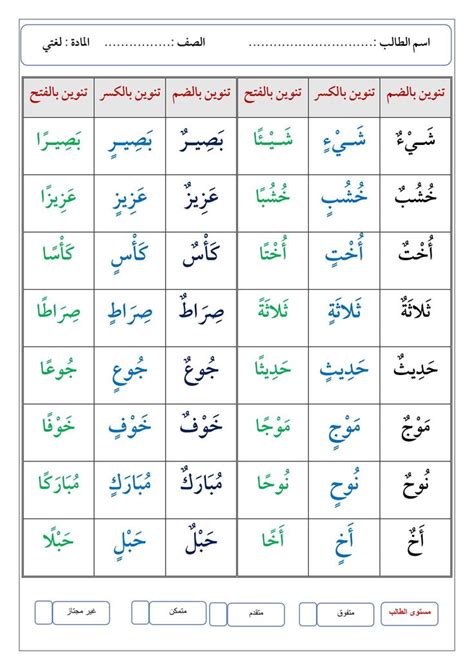 اسم الطالب :............................. الصف :................ المادة : لغتي
تنوين بالضم تنوين بالكسر تنوين بالفتح تنوين بالضم تنوين بالكسر تنوين بالفتح
شَـيْءٌ شَـيْءٍ شَـيْـئًا بَصِيـرٌ بَصِيـرٍ بَصِيـرًا
خُشُبٌ خُشُبٍ خُشُبًا عَزِيزٌ عَزِيزٍ عَزِيزًا
أُخْتٌ أُخْتٍ أُخْتًا كَأْسٌ كَأْسٍ كَأْسًا
ثَلاثَةٌ ثَلاثَةٍ ثَلاثَةً صِرَاطٌ صِرَاطٍ صِرَاطًا
حَدِيثٌ حَدِيثٍ حَدِيثًا جُوعٌ جُوعٍ جُوعًا
مَوْجٌ مَوْجٍ مَوْجًا خَوْفٌ خَوْفٍ خَوْفًا
نُوحٌ نُوحٍ نُوحًا مُبَارَكٌ مُبَارَكٍ مُبَارَكًا
أَخٌ أَخٍ أَخًا حَبْلٌ حَبْلٍ حَبْلًا
مستوى الطالب متفوق متقدم متمكن غير مجتاز